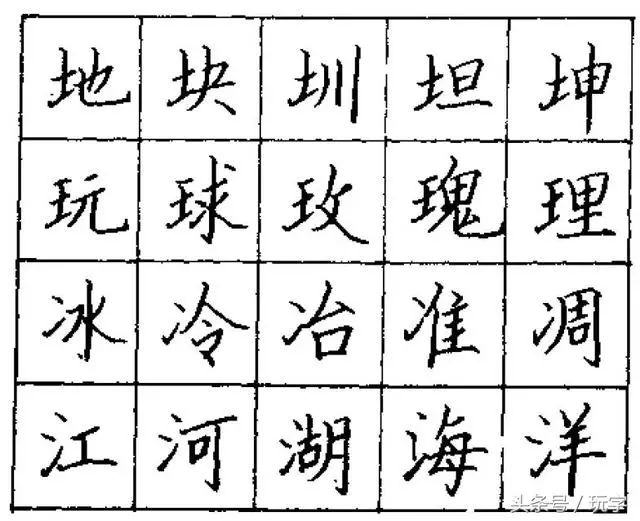 地块圳坦坤
玩球玫瑰理
冰冷冶准凋
江河湖海洋
头条号/玩字